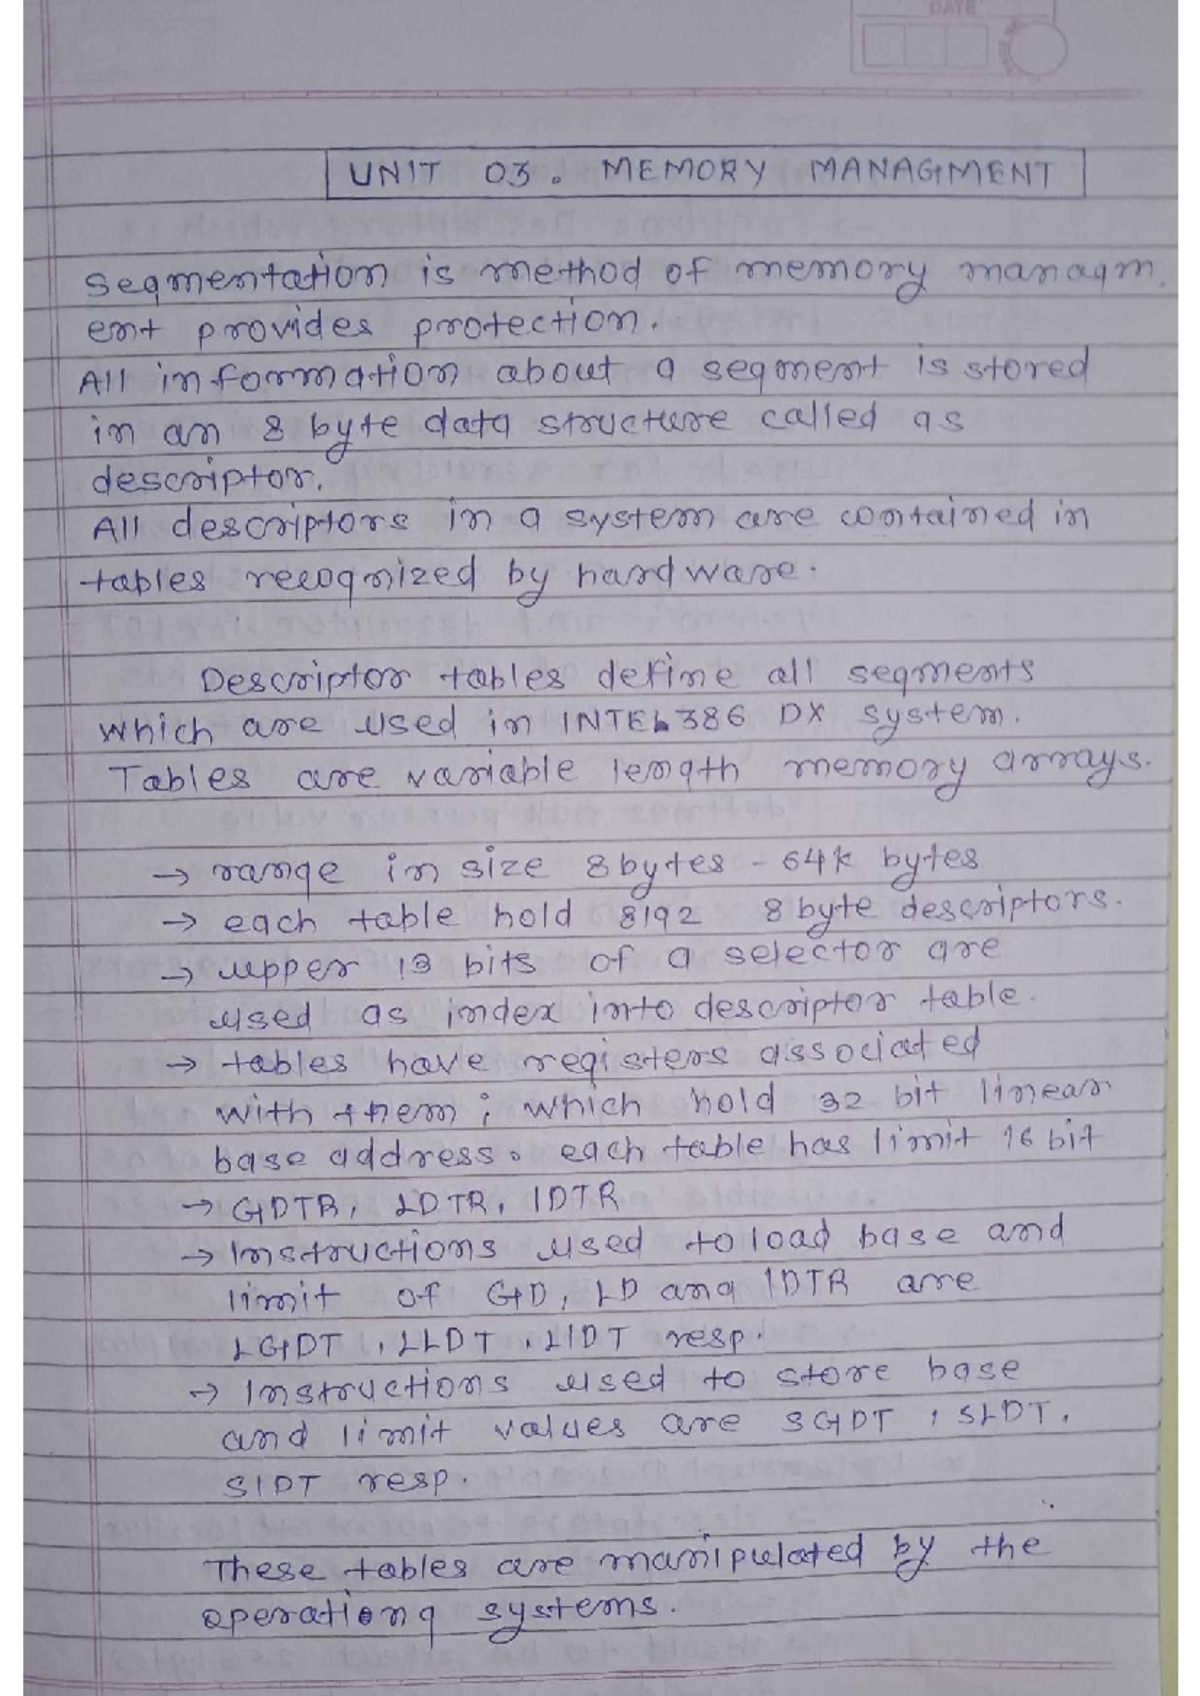 DATE
UNIT 03. MEMORY MANAGMENT
Segmentation is method of memory managm
ent provides protection.
All information about a segment is stored
in an 8 byte data structure called as
descriptor.
All descriptors in a system are contained in
tables recognized by hardware.
Descriptor tables define all segments
which are used in INTEL 386 DX system.
Tables are variable length memory arrays.
→ range in size 8bytes - 64k bytes
→ each table hold 8192 8 byte descriptors.
→ upper 13 bits of a selector are
used as index into descriptor table.
→ tables have registers associated
with them; which hold 32 bit linear
base address. each table has limit 16 bit
→ GDTR, LDTR, IDTR
→ Instructions used to load base and
limit of GD, LD and IDTR are
LGDT, LLDT, LIDT resp.
→ Instructions used to store base
and limit values are SGDT, SLDT,
SIDT resp.
These tables are manipulated by the
operationg systems.